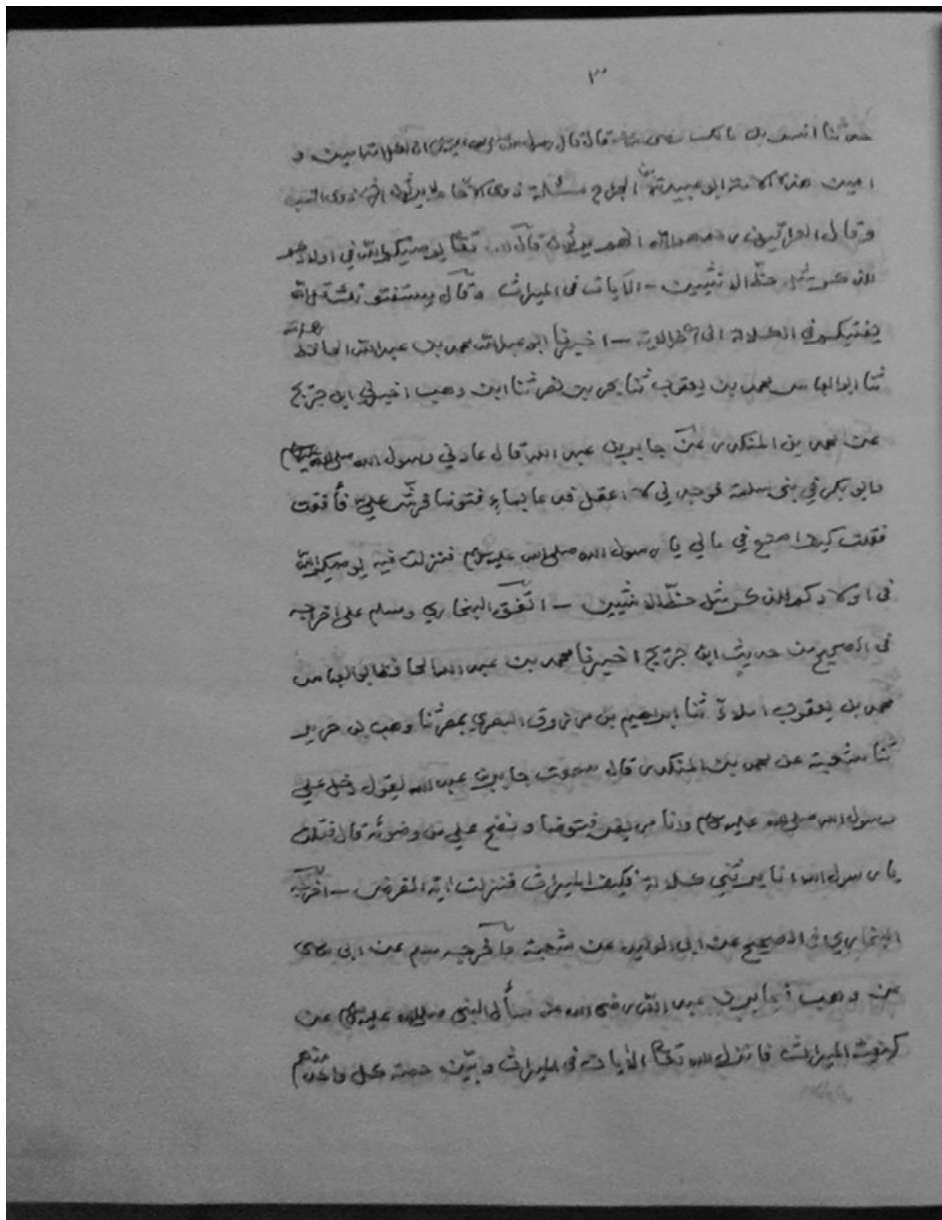 ٣
حدثنا انس بن مالك رضى الله عنه قال قال رسول الله صلى الله عليه وسلم ان لكل امة امين و
امين هذه الامة ابو عبيدة بن الجراح مسئلة ذوى الارحام لا يرثون
وقال العراقيون رحمهم الله انهم يرثون قال الله تعالى يوصيكم الله فى اولادكم
للذكر مثل حظ الانثيين - الآيات فى الميراث وقال يستفتونك قل الله
يفتيكم فى الكلالة الى آخر الاية - اخبرنا ابو عبد الله محمد بن عبد الله الحافظ
ثنا ابو العباس محمد بن يعقوب ثنا بحر بن نصر ثنا ابن وهب اخبرني ابن جريج
عن محمد بن المنكدر عن جابر بن عبد الله قال عادني رسول الله صلى الله عليه وسلم
وابو بكر في بنى سلمة فوجدني لا اعقل فدعا بماء فتوضا فرش علي فأفقت
فقلت كيف اصنع في مالي يا رسول الله صلى الله عليه وسلم فنزلت فيه يوصيكم الله
فى اولادكم للذكر مثل حظ الانثيين - اتفق البخاري ومسلم على اخراجه
فى الصحيح من حديث ابن جريج اخبرنا محمد بن عبد الله الحافظ ابو العباس
محمد بن يعقوب املاءً ثنا ابراهيم بن مرزوق البصري بمصر ثنا وهب بن جرير
ثنا شعبة عن محمد بن المنكدر قال سمعت جابر بن عبد الله يقول دخل علي
رسول الله صلى الله عليه وسلم وانا مريض فتوضا و نضح علي من وضوئه قال فقلت
يا رسول الله انما يرثني كلالة فكيف الميراث فنزلت اية الفرض - اخرجه
البخاري فى الصحيح عن ابى الوليد عن شعبة واخرجه مسلم عن ابى موسى
عن وهب جابر بن عبد الله رضى الله عنه سأل النبى صلى الله عليه وسلم عن
كيفية الميراث فانزل الله تعالى الآيات فى الميراث وبيّن حصة كل واحد منهم